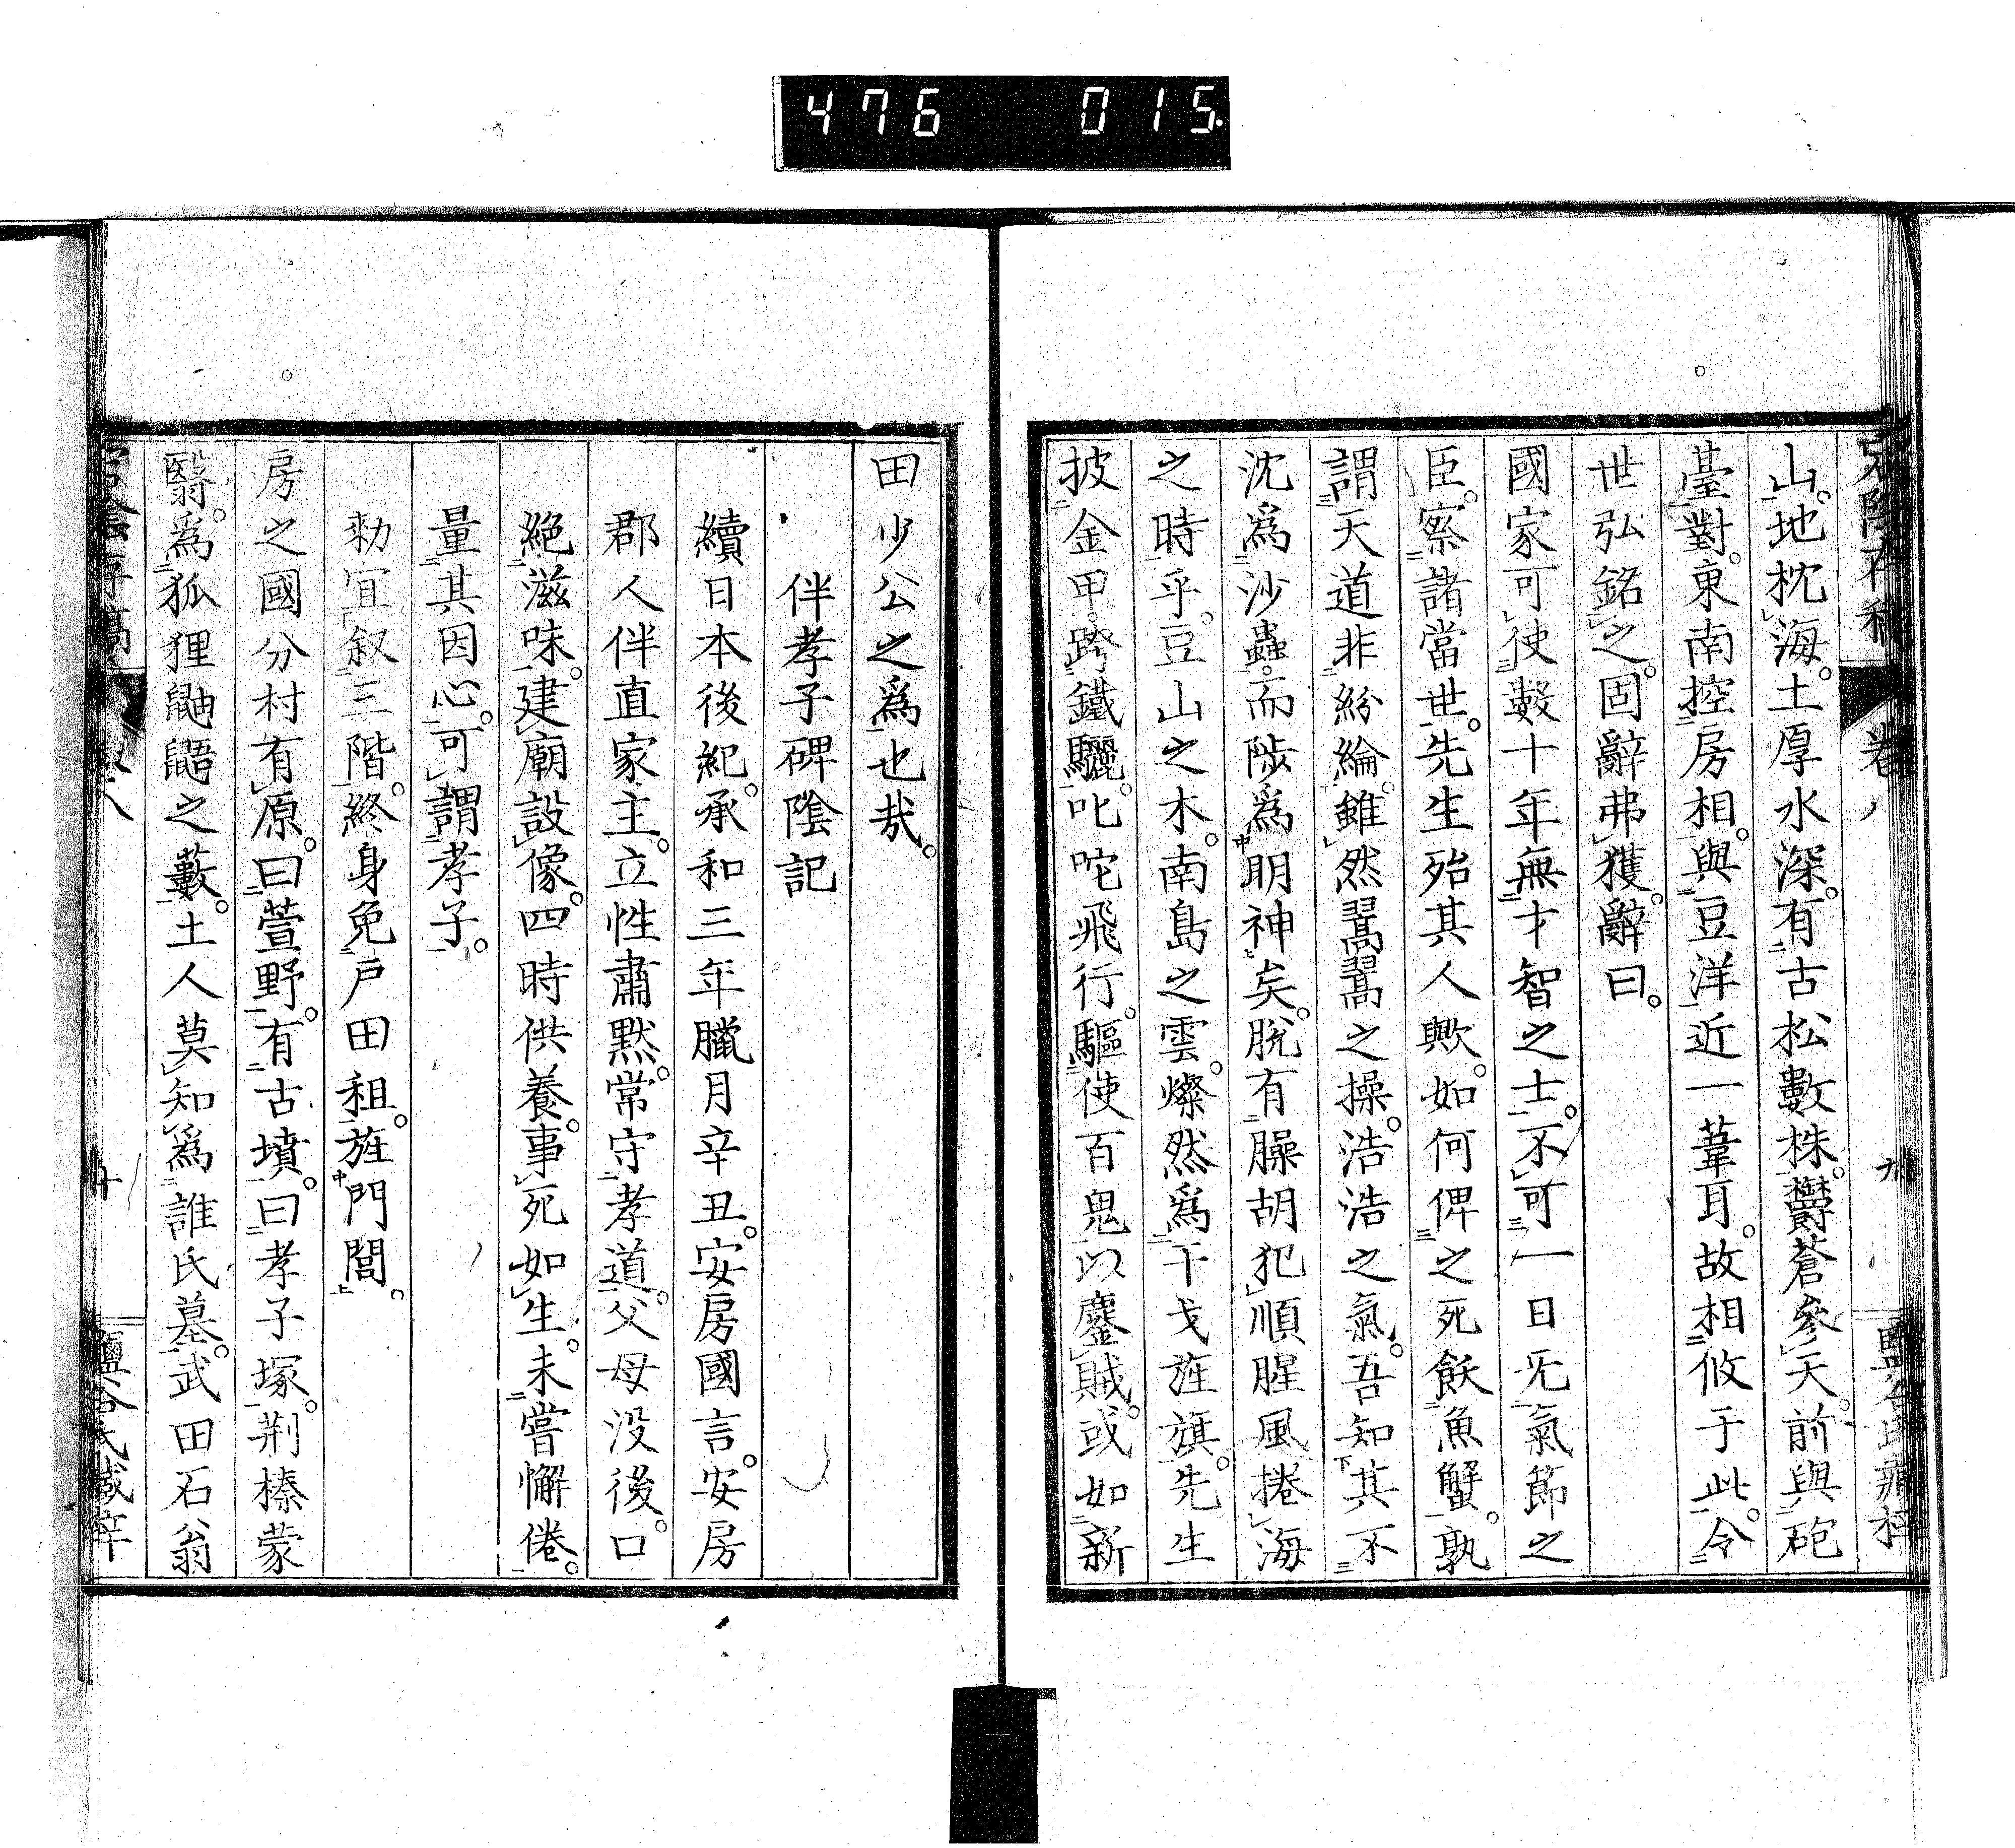 476 015.
山。地枕海。土厚水深。有古松數株。欝蒼參天。前與砲
臺對。東南控房相。與豆洋近一葦耳。故相攸于此。令
世弘銘之。固辭弗獲。辭曰。
國家可使數十年無才智之士。不可一日旡氣節之
臣。察諸當世。先生殆其人歟。如何俾之死飫魚蟹。孰
謂天道非紛綸。雖然暠暠之操。浩浩之氣。吾知其不
沈爲沙蟲。而陟爲明神矣。脫有臊胡犯順腥風捲海
之時乎。豆山之木。南島之雲。燦然爲干戈旌旗。先生
披金甲。跨鐵驪。叱咤飛行。驅使百鬼以鏖賊。或如新
卷八
九
田少公之爲也哉。
伴孝子碑陰記
續日本後紀。承和三年臘月辛丑。安房國言。安房
郡人伴直家主。立性肅默。常守孝道。父母没後。口
絶滋味。建廟設像。四時供養。事死如生。未嘗懈倦。
量其因心。可謂孝子。
勑宜叙三階。終身免戸田租。旌門閭。
房之國分村有原。曰萱野。有古墳。曰孝子塚。荆榛蒙
翳。爲狐狸鼬鼯之藪。土人莫知爲誰氏墓。武田石翁
十